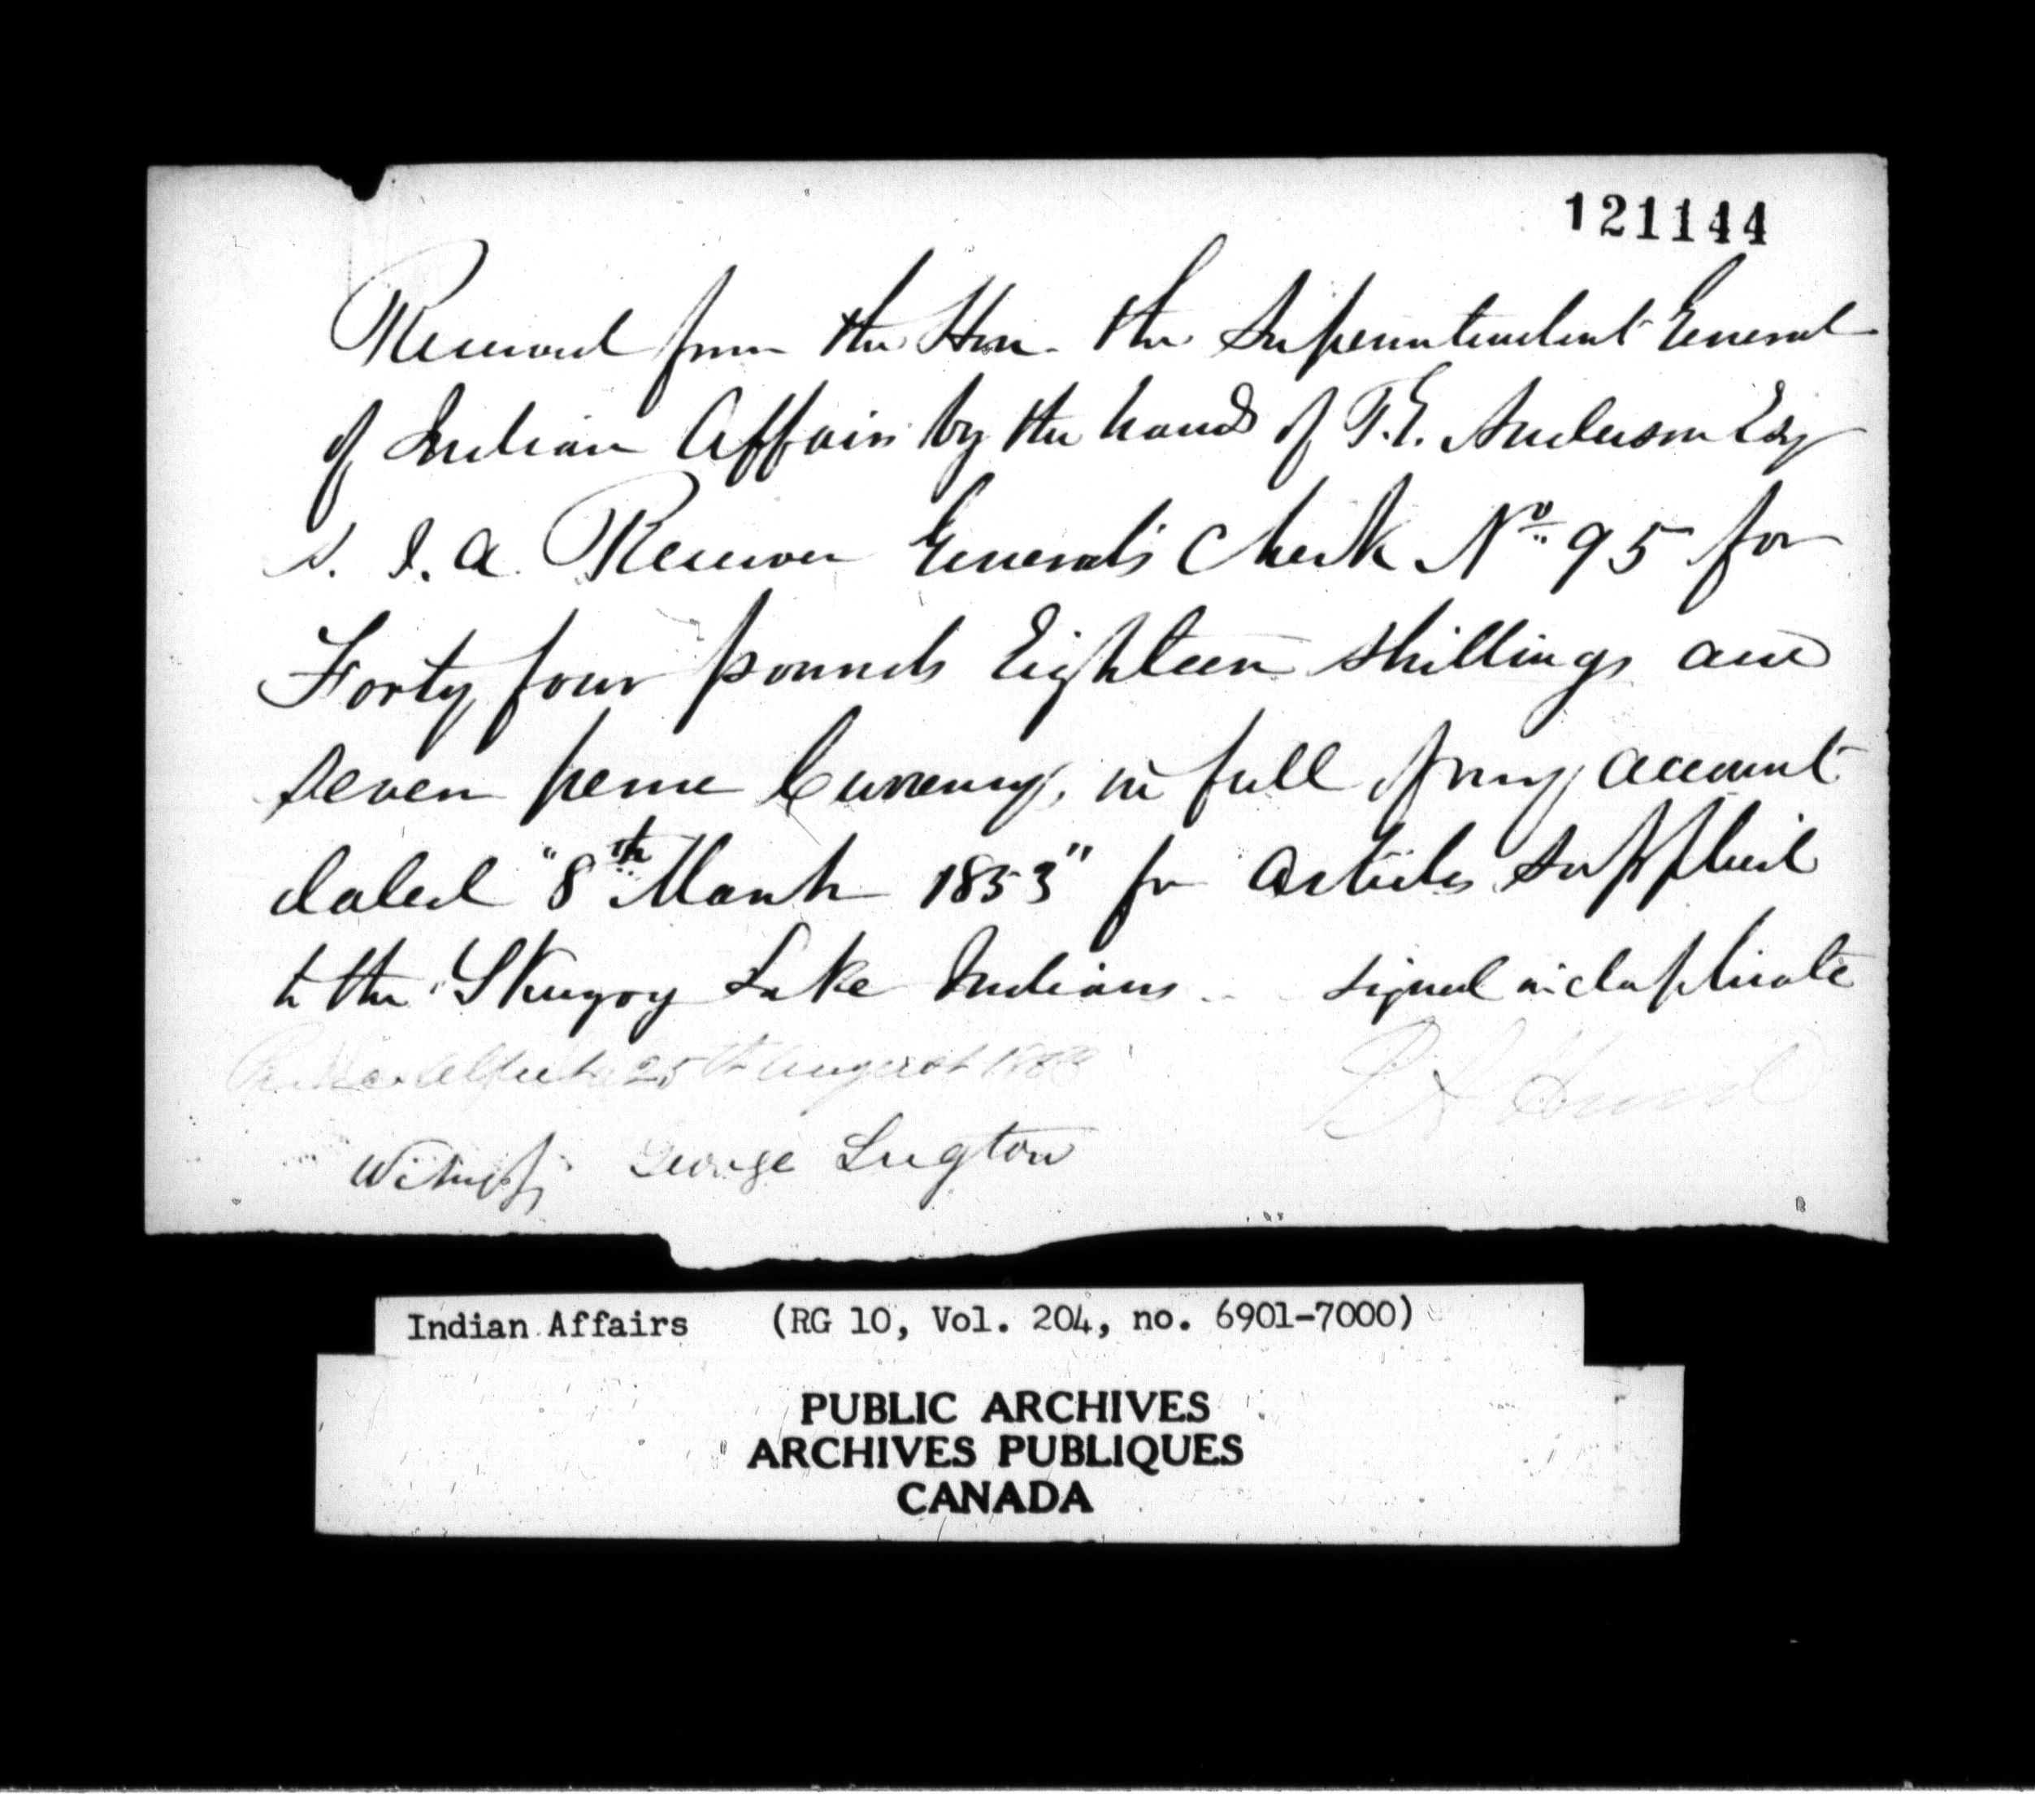 121144
Received from the Hon. the Superintendent General
of Indian Affairs by the hands of T.G. Anderson Esq
S. I. A. Receiver General's Check No 95 for
Forty four pounds Eighteen shillings and
seven pence Currency, in full of my account
dated "8th March 1853" for articles supplied
to the Skugog Lake Indians signed in duplicate
25th August
Witness George Lugton
Indian Affairs (RG 10, Vol. 204, no. 6901-7000)
PUBLIC ARCHIVES
ARCHIVES PUBLIQUES
CANADA